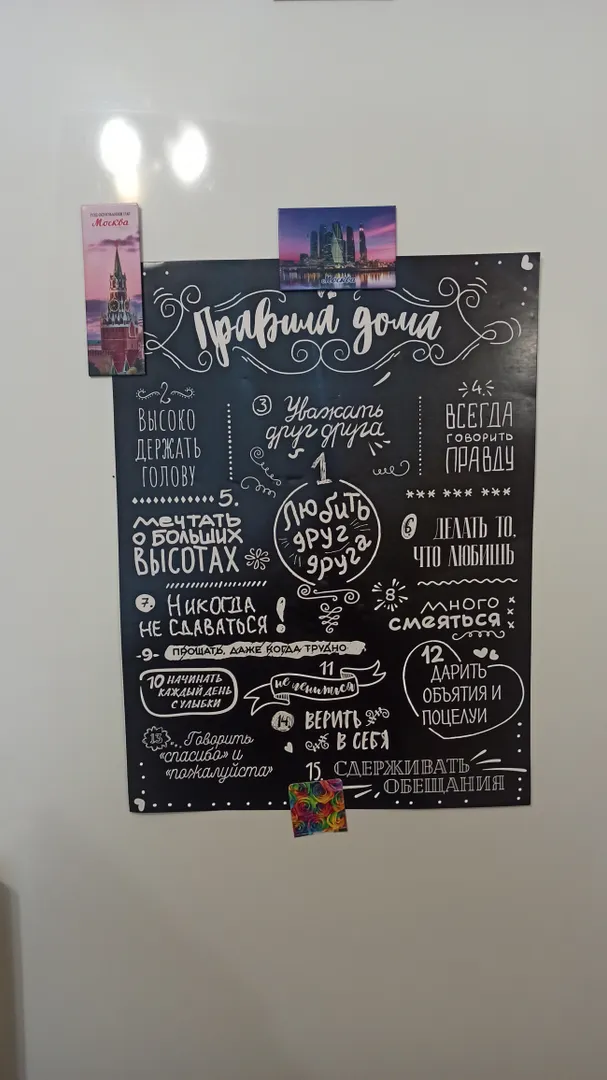 Москва
Москва
Правила дома
2
Высоко
держать
голову
3 Уважать
друг друга
4.
Всегда
говорить
правду
1
Любить
друг
друга
5.
Мечтать
о больших
высотах
6 Делать то,
что любишь
7. Никогда
не сдаваться!
8
Много
смеяться
-9- Прощать, даже когда трудно
10 Начинать
каждый день
с улыбки
11
не лениться
12
Дарить
объятия и
поцелуи
13 Говорить
«спасибо» и
«пожалуйста»
14 Верить
в себя
15. Сдерживать
обещания